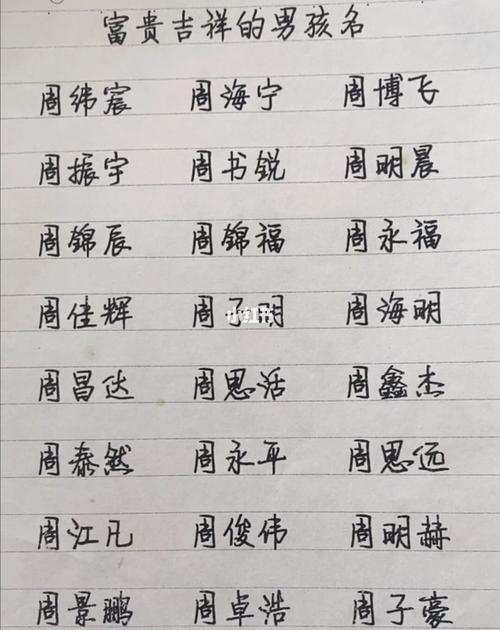 富贵吉祥的男孩名
周纬宸 周海宁 周博飞
周振宇 周书锐 周明晨
周锦辰 周锦福 周永福
周佳辉 周子明 周海明
周昌达 周思活 周鑫杰
周泰然 周永平 周思远
周江凡 周俊伟 周明赫
周景鹏 周卓浩 周子豪
小红书